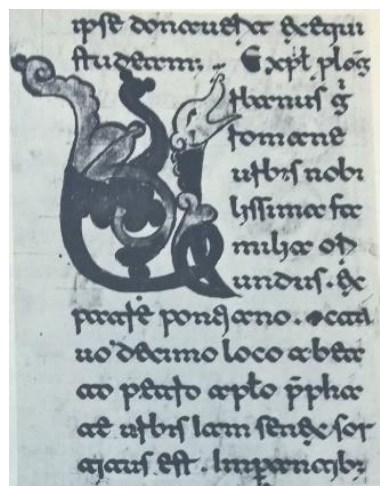 ipse donauerit exequi
studeam; Expl̄ plog̃
Urbanus q̄
romane
urbis nobi
lissima fa
milia ori
undus. ex
patre pontiano. octa
uo decimo loco a bea
to petro apl̄o p̄pha
tae urbis senex sor
titus est. Imperantib;